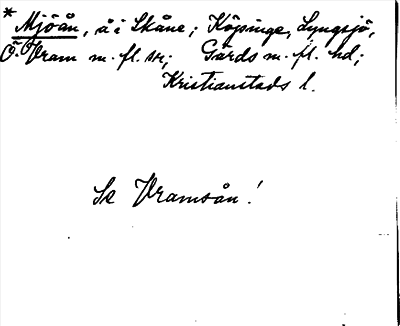 * Mjöån, å i Skåne; Köpinge, Lyngsjö,
Ö. Vram m. fl. snr; Gärds m. fl. hd;
Kristianstads l.
Se Vramsån!